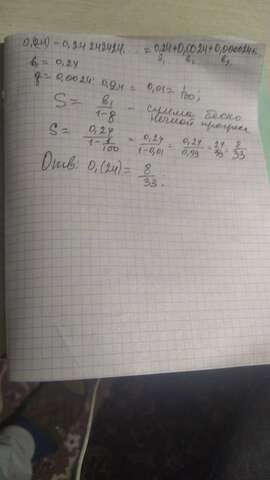 0,(24) = 0,24 242424... = 0,24+0,0024+0,000024+
b₁ b₁ b₂
b = 0,24
q = 0,0024 : 0,24 = 0,01 = 1/100;
S = b₁/(1-q) - сумма беско
нечной прогрес
S = 0,24/(1-1/100) = 0,24/(1-0,01) = 0,24/0,99 = 24/99 = 8/33
Отв: 0,(24) = 8/33.